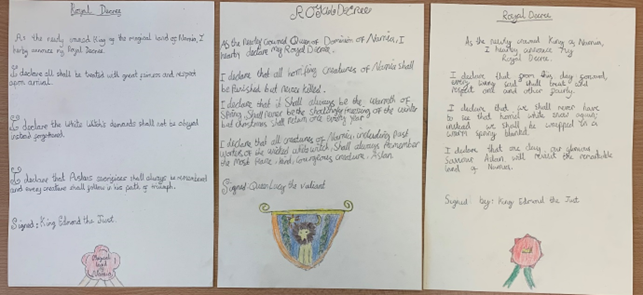 Royal Decree
As the newly crowned King of the magical land of Narnia, I
hereby announce my Royal Decree.
I declare all shall be treated with great and respect
upon arrival.
I declare the White Witch's shall not be obeyed
instead
I declare that Aslan's shall always be remembered
and every creature shall follow in his path of triumph.
Signed: King Edmond the Just
Magical
land
Narnia
Royal Decree
As the newly crowned Queen of Dominion of Narnia, I
hearby declare my Royal Decree.
I declare that all horrifing creatures of Narnia shall
be Banished but never killed.
I declare that it shall always be the warmth of
Spring. Shall never be the freezing of the winter
but christmas shall return once every year.
I declare that all creatures of Narnia, including past
the wicked white witch, shall always remember
the Most brave, kind, courageous creature: Aslan.
Signed: Queen Lucy the valiant
Royal Decree
As the newly crowned King of Narnia,
I hearby announce my
Royal Decree.
I declare that from this day forward,
every being shall treat and
respect one and other fairly.
I declare that we shall never have
to see that horrid white snow again;
instead we shall be wrapped in a
warm spring blanket.
I declare that one day, our glorious
Aslan, will revisit the remarkable
land of Narnia.
Signed by: King Edmond the Just